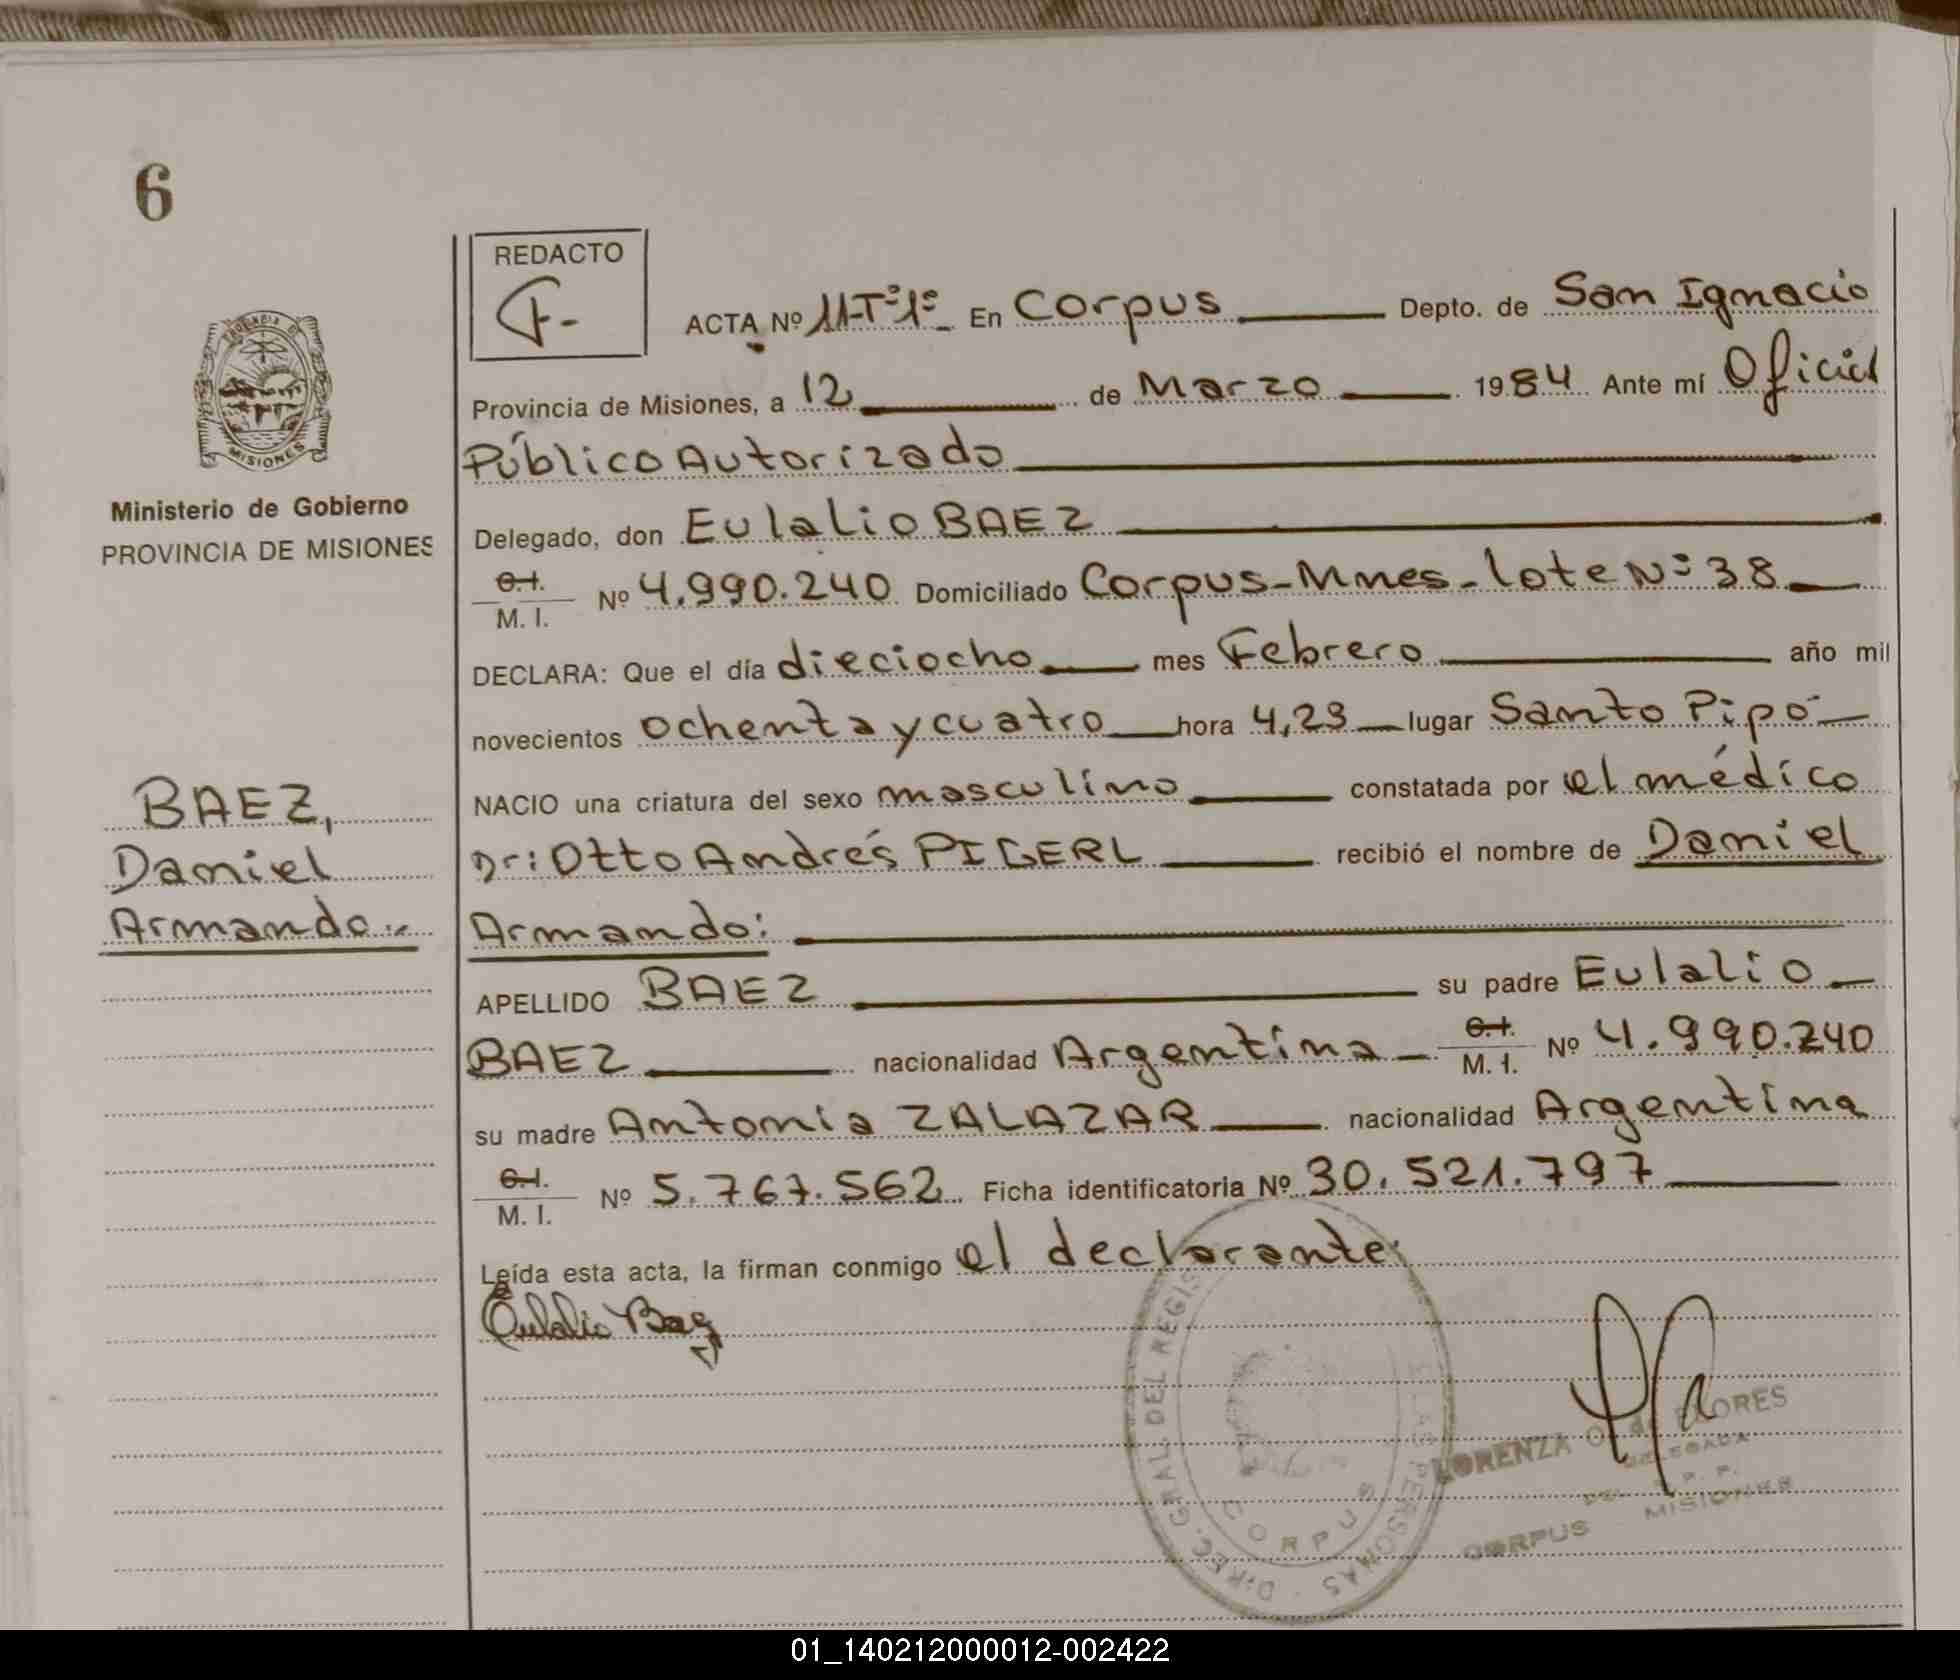 6
REDACTO
F.-
ACTA Nº 11-Tº1º- En Corpus Depto. de San Ignacio
Provincia de Misiones, a 12 de Marzo 1984 Ante mí Oficial
Público Autorizado
Delegado, don Eulalio BAEZ
C.I. M. I. Nº 4.990.240 Domiciliado Corpus-Mnes-lote Nº 38
DECLARA: Que el día dieciocho mes Febrero año mil
novecientos ochenta y cuatro hora 4,23 lugar Santo Pipó
NACIO una criatura del sexo masculino constatada por el médico
Dr: Otto Andrés PIGERL recibió el nombre de Daniel
Armando:
APELLIDO BAEZ su padre Eulalio
BAEZ nacionalidad Argentina C.I. M. I. Nº 4.990.240
su madre Antonia ZALAZAR nacionalidad Argentina
C.I. M. I. Nº 5.767.562 Ficha identificatoria Nº 30.521.797
Leída esta acta, la firman conmigo el declarante.
Eulalio Baez
PROVINCIA DE
MISIONES
Ministerio de Gobierno
PROVINCIA DE MISIONES
BAEZ,
Daniel
Armando.-
DIREC. GRAL. DEL REGIS PERSONAS
CORPUS
LORENZA O. de FLORES
DELEGADA
DEL R. P. P.
CORPUS MISIONES
01_140212000012-002422